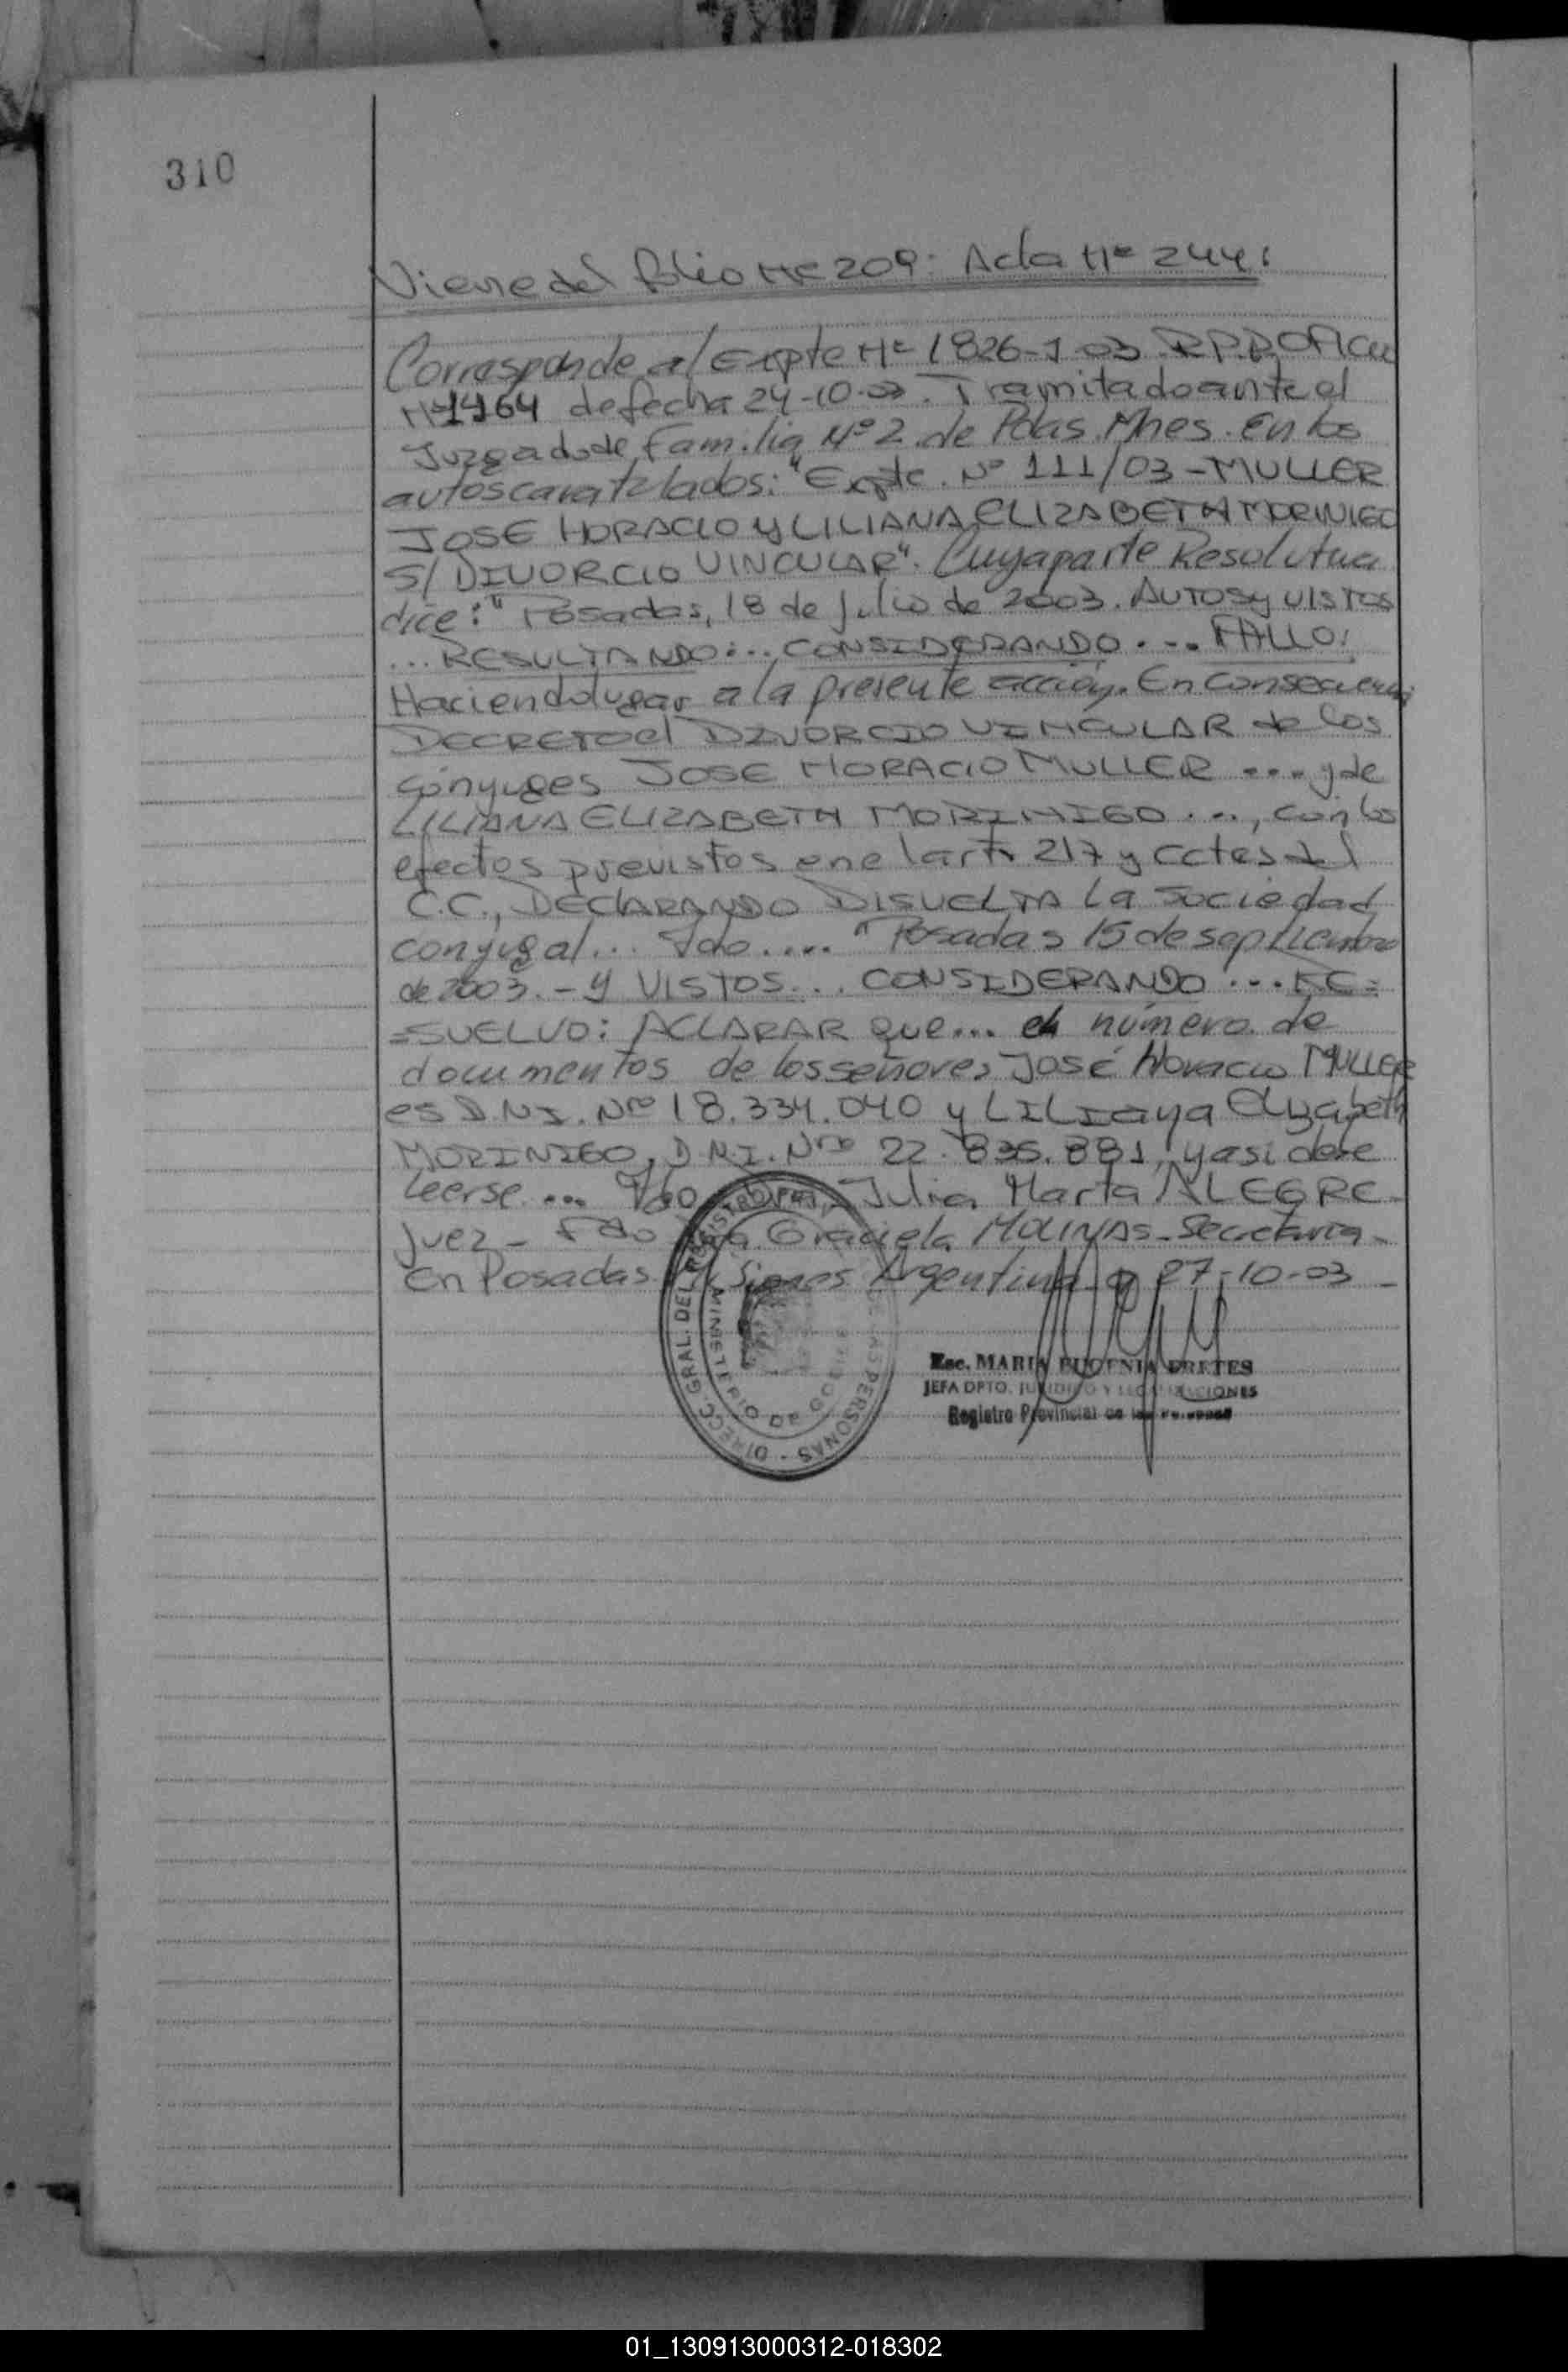 310
Viene del folio Nº 209: Acta Nº 244:
Corresponde al Expte Nº 1826-J-03 R.P.P. Oficio
Nº 1464 de fecha 24-10-03. Tramitado ante el
Juzgado de Familia Nº 2 de Pdas. Mnes. En los
autos caratulados: "Expte. Nº 111/03 - MULLER
JOSE HORACIO y LILIANA ELIZABETH MORINIGO
S/ DIVORCIO VINCULAR". Cuya parte Resolutiva
dice: "Posadas, 18 de julio de 2003. AUTOS y VISTOS
... RESULTANDO: ... CONSIDERANDO ... FALLO:
Haciendo lugar a la presente acción. En consecuencia
DECRETO el DIVORCIO VINCULAR de los
cónyuges JOSE HORACIO MULLER .... y de
LILIANA ELIZABETH MORINIGO ..., con los
efectos previstos en el art. 217 y cctes del
C.C., DECLARANDO DISUELTA la sociedad
conyugal... Fdo .... "Posadas 15 de septiembre
de 2003. - Y VISTOS ... CONSIDERANDO ... RE=
=SUELVO: ACLARAR que... el número de
documentos de los señores José Horacio MULLER
es D.N.I. Nro 18.334.040 y LILIana Elizabeth
MORINIGO, D.N.I. Nro 22.835.881, y asi debe
leerse ... Fdo Julia Marta ALEGRE
Juez - Fdo Dra. Graciela MOLINAS - Secretaria -
En Posadas Misiones Argentina a 27-10-03 -
DIRECC. GRAL. DEL REGISTRO PROV. DE LAS PERSONAS -
MINISTERIO DE GOBIERNO
Esc. MARIA EUGENIA BRETES
JEFA DPTO. JURIDICO Y LEGALIZACIONES
Registro Provincial de las Personas
01_130913000312-018302